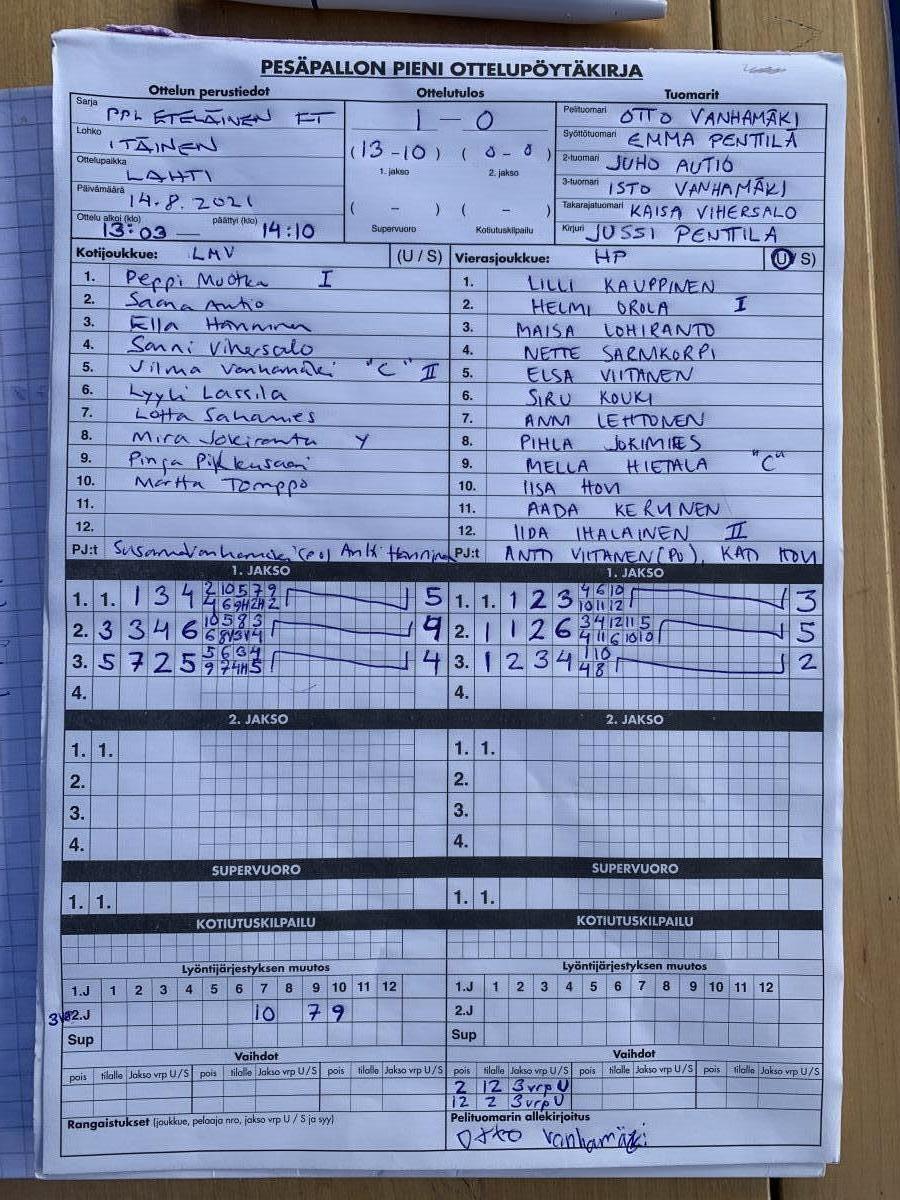 PESÄPALLON PIENI OTTELUPÖYTÄKIRJA
Ottelun perustiedot Ottelutulos Tuomarit
Sarja PPL ETELÄINEN FT
Lohko ITÄINEN
Ottelupaikka LAHTI
Päivämäärä 14.8.2021
Ottelu alkoi (klo) 13:03 — päättyi (klo) 14:10
1 — 0
(13-10) (0-0)
1. jakso 2. jakso
( - ) ( - )
Supervuoro Kotiutuskilpailu
Pelituomari OTTO VANHAMÄKI
Syöttötuomari EMMA PENTTILÄ
2-tuomari JUHO AUTIO
3-tuomari ISTO VANHAMÄKI
Takarajatuomari KAISA VIHERSALO
Kirjuri JUSSI PENTTILA
Kotijoukkue: LMV (U / S)
1. Peppi Muotka I
2. Saana Autio
3. Ella Hanninen
4. Sanni Vihersalo
5. Vilma Vanhamäki "C" II
6. Lyyli Lassila
7. Lotta Sahamies
8. Mira Jokiranta Y
9. Pinja Pikkusaari
10. Martta Tomppo
11.
12.
PJ:t Susanna Vanhamäki (PO) Antti Hanninen
Vierasjoukkue: HP (U / S)
1. LILLI KAUPPINEN
2. HELMI OROLA I
3. MAISA LOHIRANTO
4. NETTE SARNIKORPI
5. ELSA VIITANEN
6. SIRU KOUKI
7. ANNI LEHTONEN
8. PIHLA JOKIMIES
9. MELLA HIETALA "C"
10. IISA HOVI
11. AADA KERVINEN
12. IIDA IHALAINEN II
PJ:t ANTTI VIITANEN (PO), KATI HOVI
1. JAKSO
1. 1. 1 3 4 2 10 5 7 9 5
4 6 9
2. 3 3 4 6 10 5 8 3 4
3. 5 7 2 5 5 6 3 4 4
4.
1. JAKSO
1. 1. 1 2 3 4 6 10 3
10 11 12
2. 1 1 2 6 3 4 12 11 5 5
4 11 6 10 10
3. 1 2 3 4 1 10 2
4 8
4.
2. JAKSO
1. 1.
2.
3.
4.
2. JAKSO
1. 1.
2.
3.
4.
SUPERVUORO
1. 1.
SUPERVUORO
1. 1.
KOTIUTUSKILPAILU
KOTIUTUSKILPAILU
Lyöntijärjestyksen muutos
1.J 1 2 3 4 5 6 7 8 9 10 11 12
2.J 10 7 9
Sup
Lyöntijärjestyksen muutos
1.J 1 2 3 4 5 6 7 8 9 10 11 12
2.J
Sup
Vaihdot
pois tilalle Jakso vrp U/S pois tilalle Jakso vrp U/S pois tilalle Jakso vrp U/S
Vaihdot
pois tilalle Jakso vrp U/S pois tilalle Jakso vrp U/S pois tilalle Jakso vrp U/S
2 12 3 vrp U
12 2 3 vrp U
Rangaistukset (joukkue, pelaaja nro, jakso vrp U / S ja syy)
Pelituomarin allekirjoitus
Otto Vanhamäki